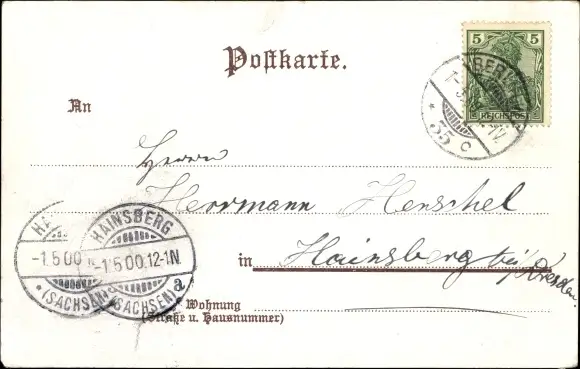 Postkarte.
5
REICHSPOST
BERLIN
35 c
An
Herrn
Herrmann Henschel
in Hainsberg bei Dresden.
HAINSBERG
-1.5.00.12-1N.
(SACHSEN) a
-1.5.00
(SACHSEN)
Wohnung
(Straße u. Hausnummer)